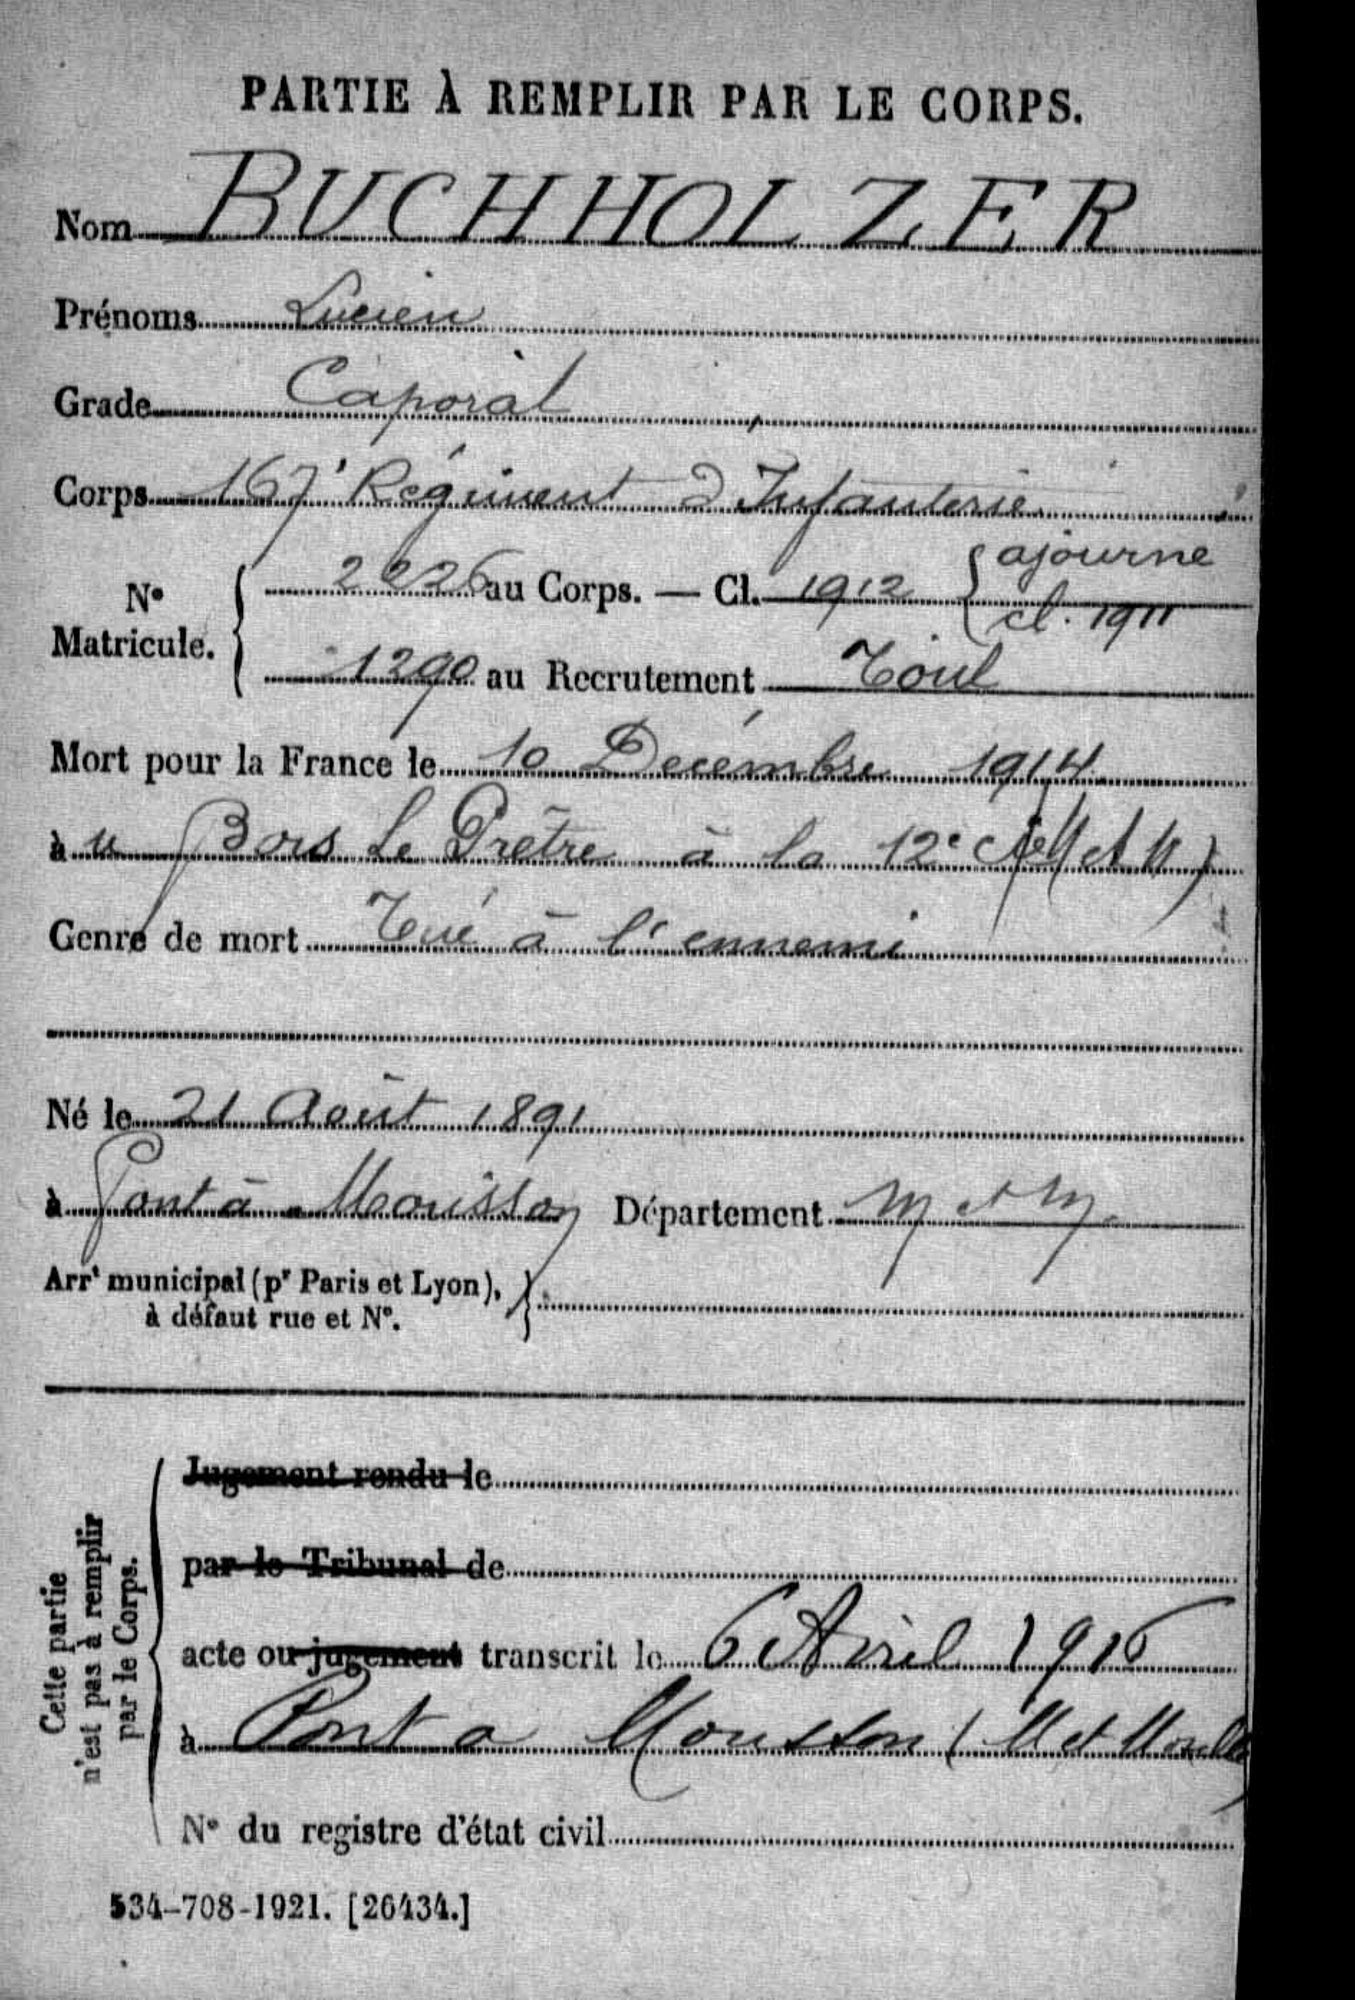 PARTIE À REMPLIR PAR LE CORPS.
Nom BUCHHOLZER
Prénoms Lucien
Grade Caporal
Corps 167e Régiment d'Infanterie
No Matricule. { 2226 au Corps. — Cl. 1912 { ajourné cl. 1911
1290 au Recrutement Toul
Mort pour la France le 10 Décembre 1914
à u Bois Le Prêtre à la 12e Cie (M et M)
Genre de mort Tué à l'ennemi
Né le 21 Août 1891
à Pont à-Mousson Département M et M.
Arrt municipal (pr Paris et Lyon),
à défaut rue et No.
Cette partie
n'est pas à remplir
par le Corps.
Jugement rendu le
par le Tribunal de
acte ou jugement transcrit le 6 Avril 1916
à Pont a Mousson (M et Moselle)
No du registre d'état civil
534-708-1921. [26434.]